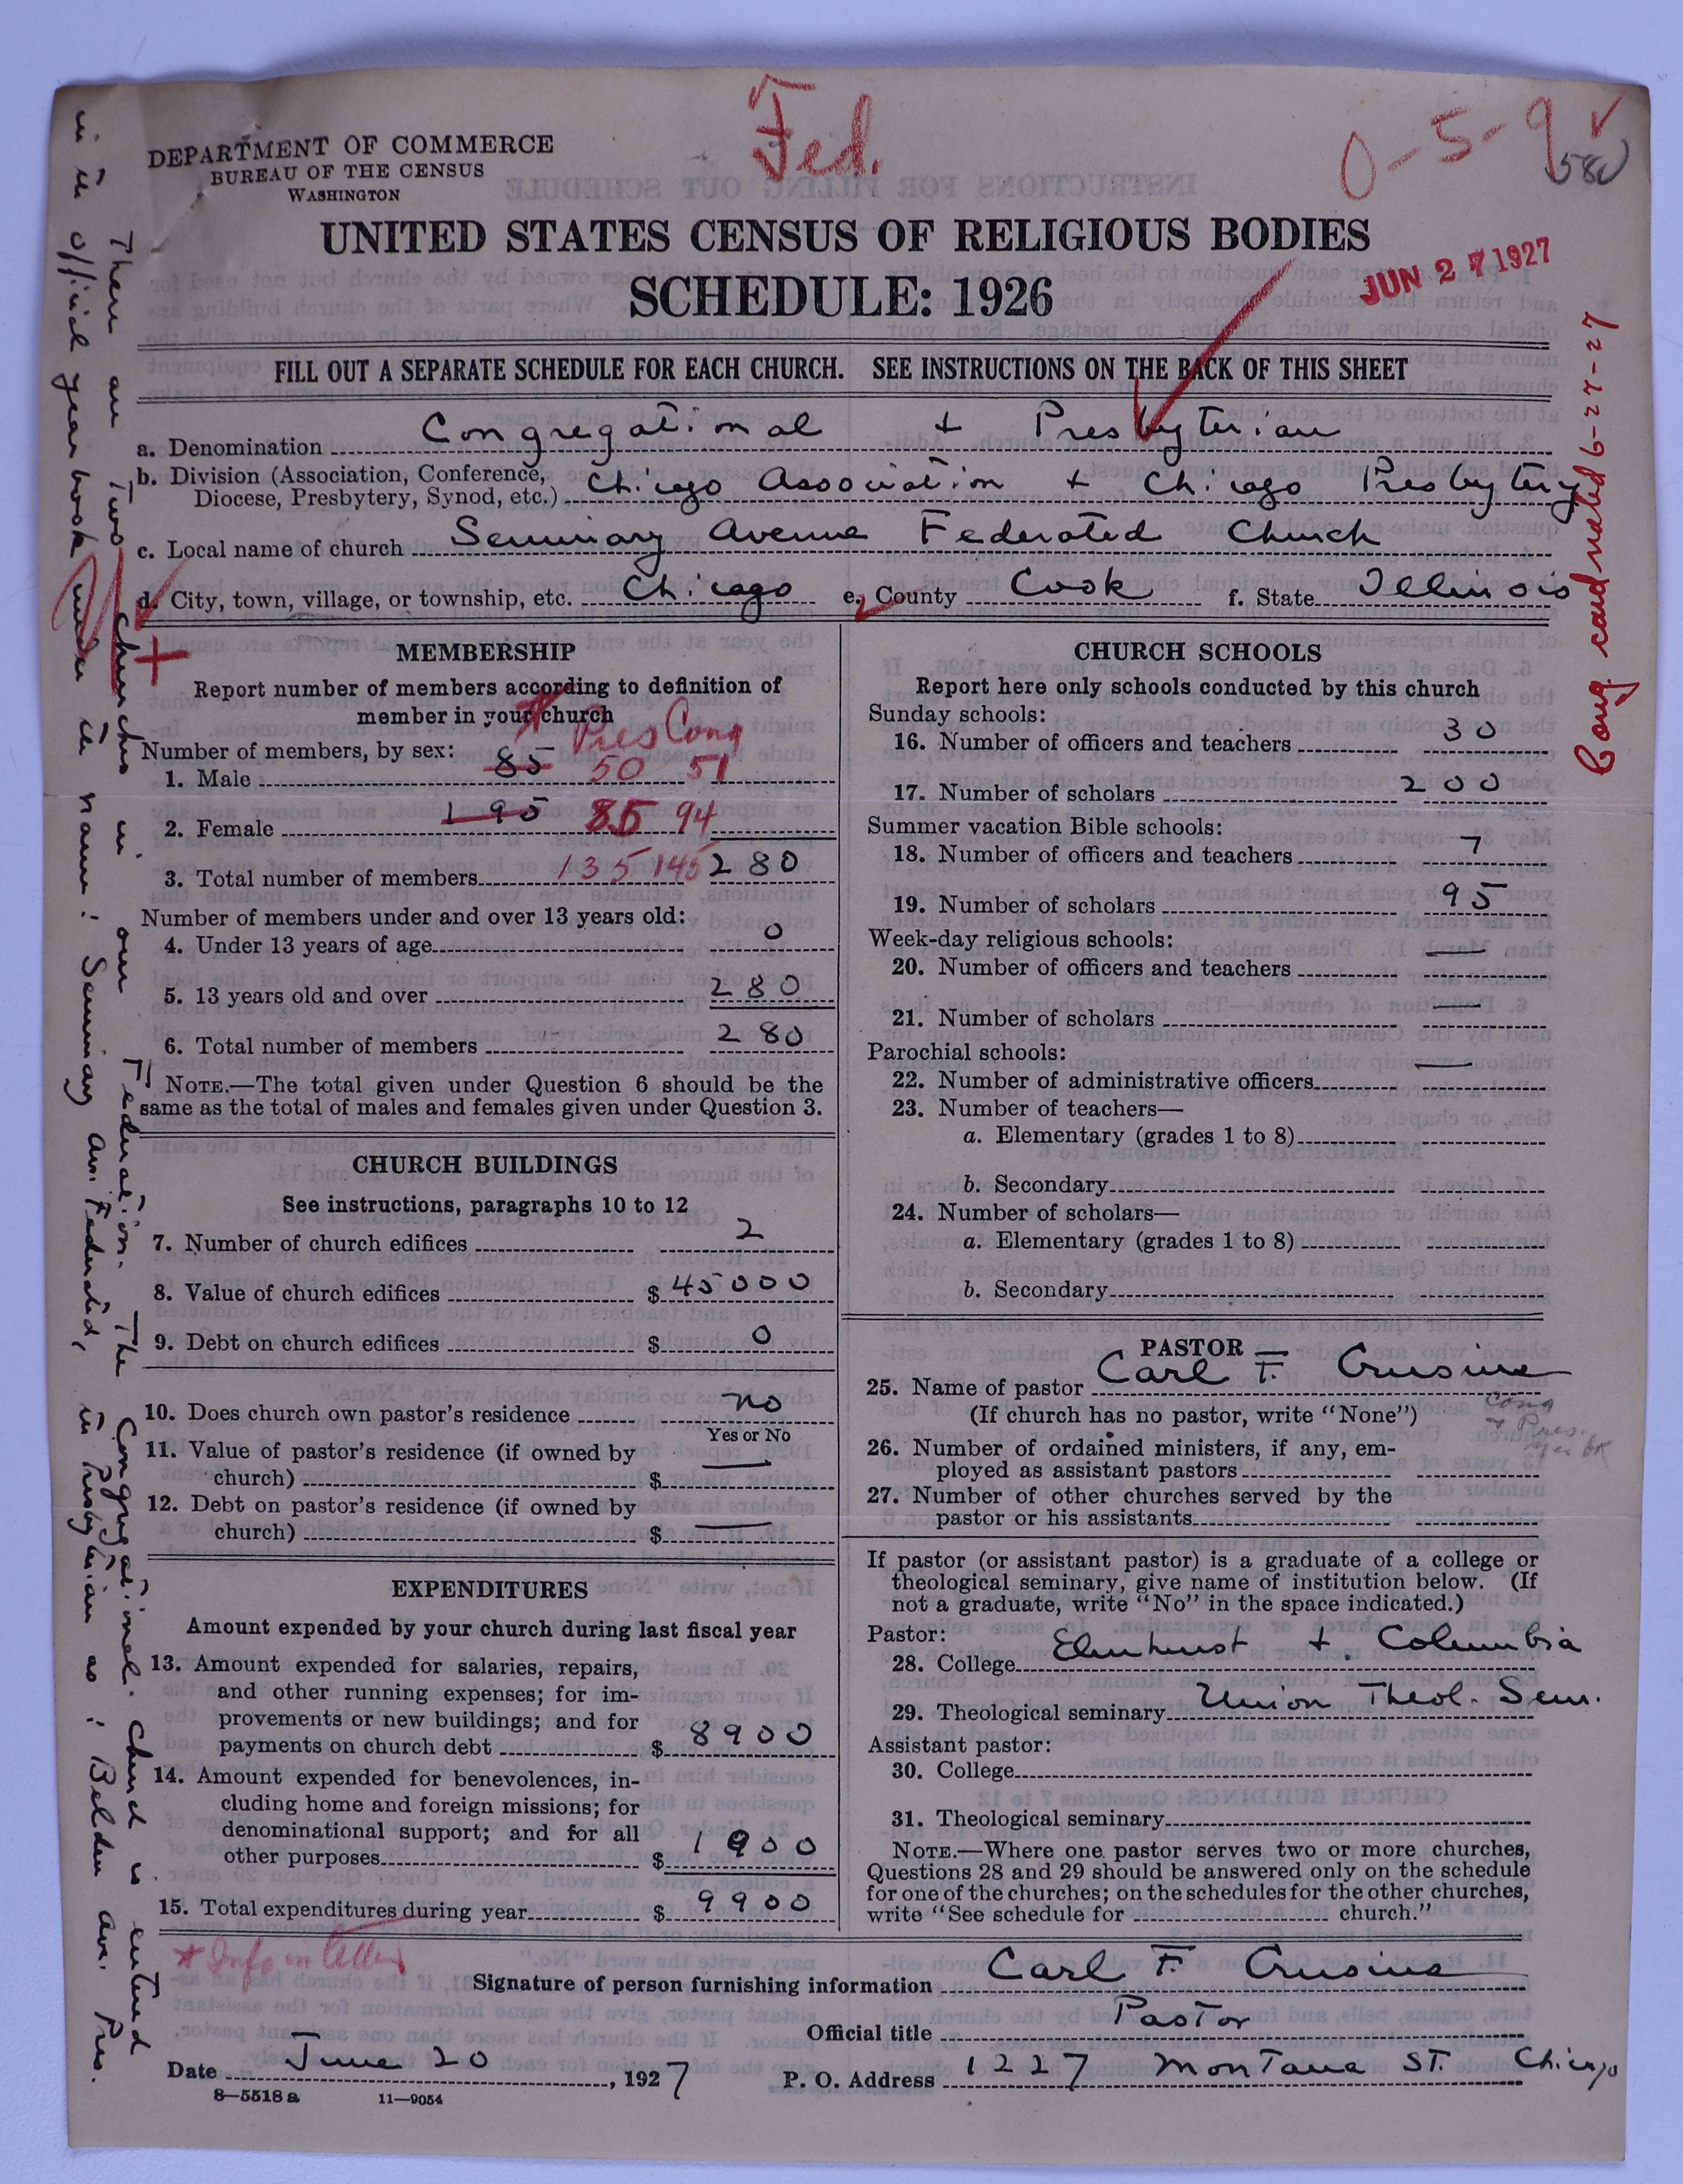 Fed.
0-5-9
580
DEPARTMENT OF COMMERCE
BUREAU OF THE CENSUS
WASHINGTON
UNITED STATES CENSUS OF RELIGIOUS BODIES
SCHEDULE: 1926
JUN 27 1927
FILL OUT A SEPARATE SCHEDULE FOR EACH CHURCH. SEE INSTRUCTIONS ON THE BACK OF THIS SHEET
a. Denomination Congregational + Presbyterian
b. Division (Association, Conference,
Diocese, Presbytery, Synod, etc.) Chicago Association + Chicago Presbytery
c. Local name of church Seminary Avenue Federated Church
d. City, town, village, or township, etc. Chicago e. County Cook f. State Illinois
Cong. card mailed 6-27-27
There are two churches in our Federation. The Congregational church is entered
in the official year book under the name: Seminary Av. Federated, in Presbyterian as: Belden Av. Pres.
MEMBERSHIP
Report number of members according to definition of
member in your church
* Pres Cong
Number of members, by sex:
1. Male 85 50 51
2. Female 195 85 94
3. Total number of members 135 145 280
Number of members under and over 13 years old:
4. Under 13 years of age 0
5. 13 years old and over 280
6. Total number of members 280
NOTE.—The total given under Question 6 should be the
same as the total of males and females given under Question 3.
CHURCH BUILDINGS
See instructions, paragraphs 10 to 12
7. Number of church edifices 2
8. Value of church edifices $ 45000
9. Debt on church edifices $ 0
10. Does church own pastor's residence no
Yes or No
11. Value of pastor's residence (if owned by
church) $ —
12. Debt on pastor's residence (if owned by
church) $ —
EXPENDITURES
Amount expended by your church during last fiscal year
13. Amount expended for salaries, repairs,
and other running expenses; for im-
provements or new buildings; and for
payments on church debt $ 8900
14. Amount expended for benevolences, in-
cluding home and foreign missions; for
denominational support; and for all
other purposes $ 1000
15. Total expenditures during year $ 9900
* Info in letter
CHURCH SCHOOLS
Report here only schools conducted by this church
Sunday schools:
16. Number of officers and teachers 30
17. Number of scholars 200
Summer vacation Bible schools:
18. Number of officers and teachers 7
19. Number of scholars 95
Week-day religious schools:
20. Number of officers and teachers —
21. Number of scholars —
Parochial schools:
22. Number of administrative officers —
23. Number of teachers—
a. Elementary (grades 1 to 8)
b. Secondary
24. Number of scholars—
a. Elementary (grades 1 to 8)
b. Secondary
PASTOR
25. Name of pastor Carl F. Crusius
(If church has no pastor, write "None")
Cong
+ Pres.
26. Number of ordained ministers, if any, em-
ployed as assistant pastors
27. Number of other churches served by the
pastor or his assistants
If pastor (or assistant pastor) is a graduate of a college or
theological seminary, give name of institution below. (If
not a graduate, write "No" in the space indicated.)
Pastor:
28. College Elmhurst + Columbia
29. Theological seminary Union Theol. Sem.
Assistant pastor:
30. College
31. Theological seminary
NOTE.—Where one pastor serves two or more churches,
Questions 28 and 29 should be answered only on the schedule
for one of the churches; on the schedules for the other churches,
write "See schedule for church."
Signature of person furnishing information Carl F. Crusius
Official title Pastor
Date June 20, 1927 P. O. Address 1227 Montana St. Chicago
8—5518 a 11—9054